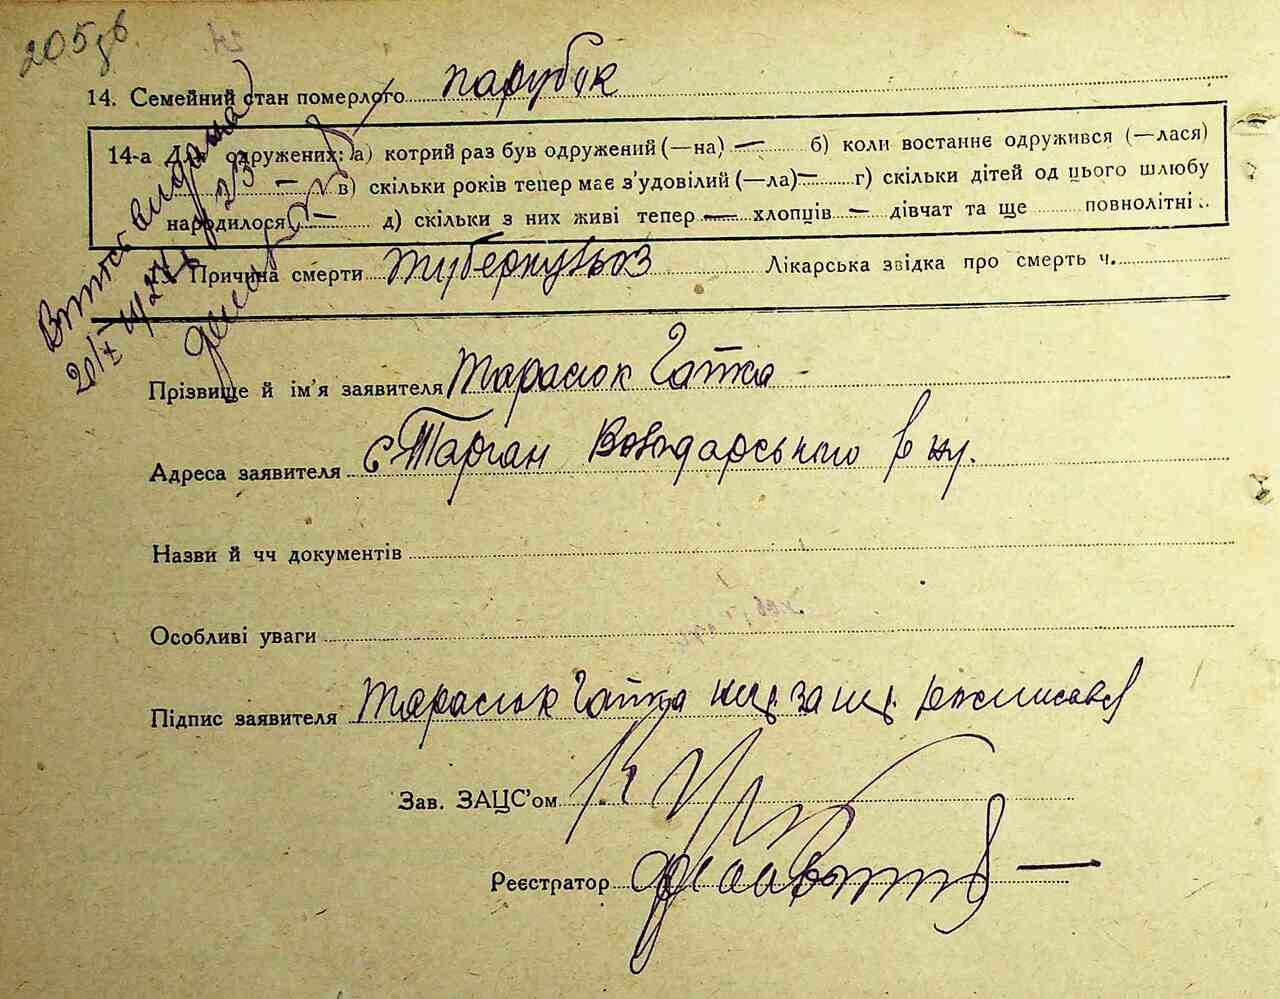 205 зв
14. Семейний стан померлого парубок
14-а Для одружених: а) котрий раз був одружений (—на) — б) коли востаннє одружився (—лася)
— в) скільки років тепер має з'удовілий (—ла) — г) скільки дітей од цього шлюбу
народилося — д) скільки з них живі тепер — хлопців — дівчат та ще повнолітні
15. Причина смерти туберкульоз Лікарська звідка про смерть ч.
Витяг видано
20/X
Прізвище й ім'я заявителя Тарасюк Гапка
Адреса заявителя с Тарган Володарського р ну.
Назви й чч документів
Особливі уваги
Підпис заявителя Тарасюк Гапка нп. за нп. розписався
Зав. ЗАЦС'ом
Реєстратор